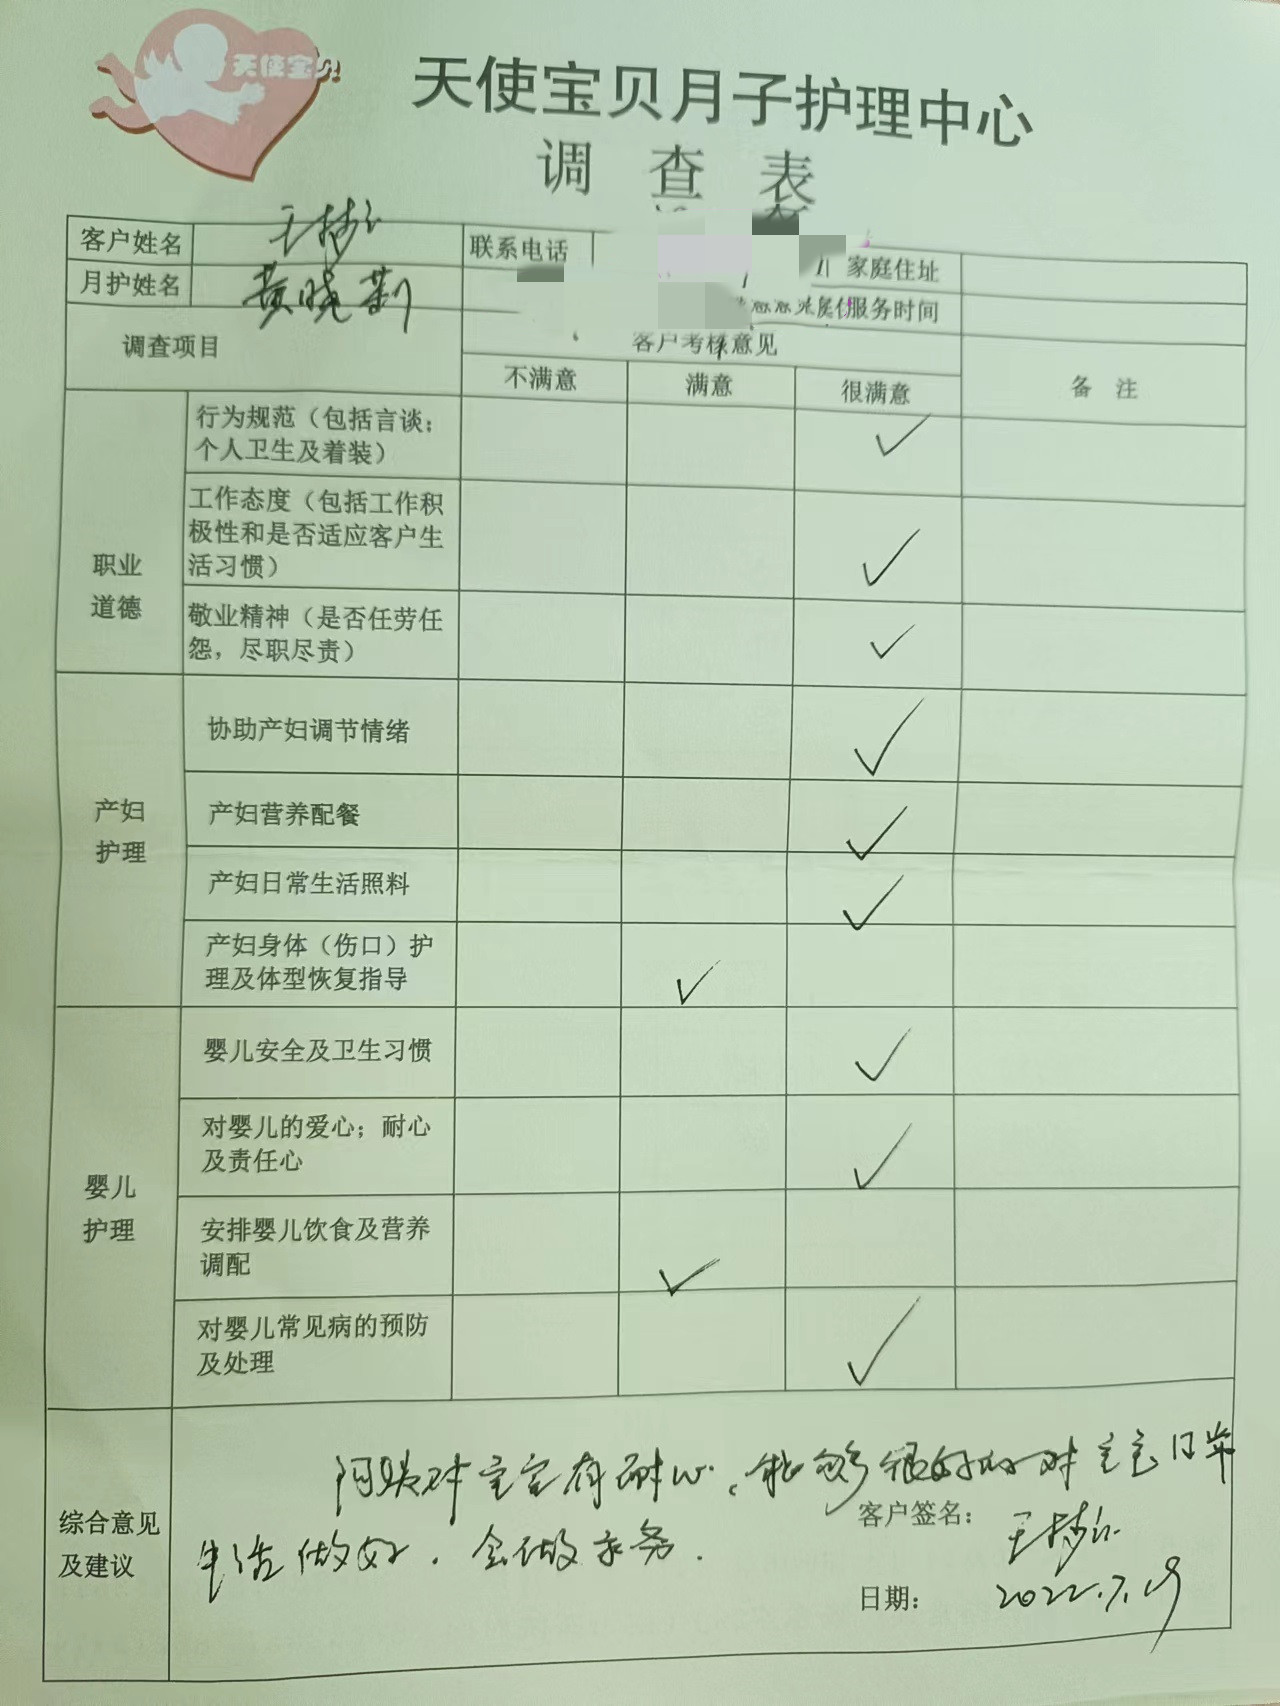 天使宝贝
天使宝贝月子护理中心
调 查 表
客户姓名 联系电话 家庭住址
月护姓名 黄晓莉 服务时间
调查项目 客户考核意见 备 注
不满意 满意 很满意
职业
道德
行为规范（包括言谈；
个人卫生及着装） ✓
工作态度（包括工作积
极性和是否适应客户生
活习惯） ✓
敬业精神（是否任劳任
怨，尽职尽责） ✓
产妇
护理
协助产妇调节情绪 ✓
产妇营养配餐 ✓
产妇日常生活照料 ✓
产妇身体（伤口）护
理及体型恢复指导 ✓
婴儿
护理
婴儿安全及卫生习惯 ✓
对婴儿的爱心；耐心
及责任心 ✓
安排婴儿饮食及营养
调配 ✓
对婴儿常见病的预防
及处理 ✓
综合意见
及建议
阿姨对宝宝有耐心，能够很好的对宝宝日常
生活做好，会做家务．
客户签名：
日期： 2022.7.19